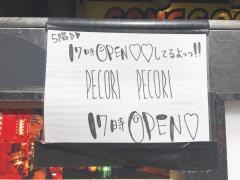 5階▷▷
17時OPEN♡♡してるよっっ!!
PECORI PECORI
17時OPEN♡